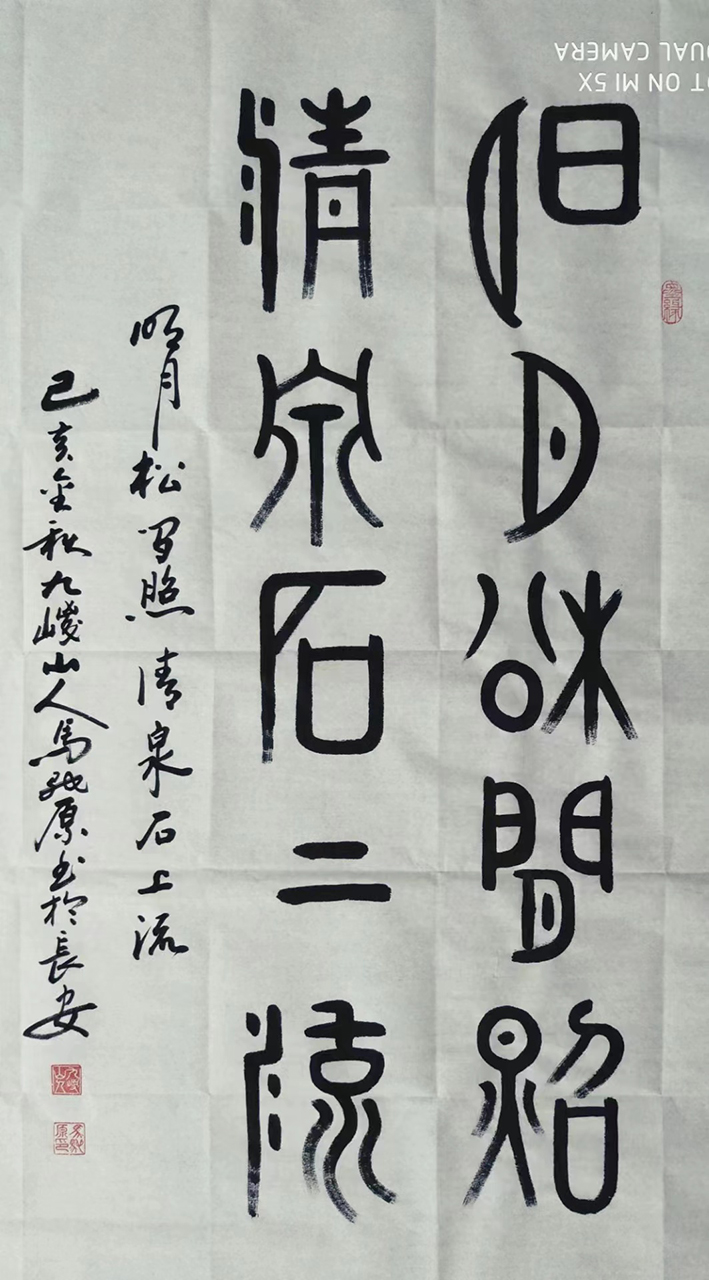 明月松間照
清泉石上流
明月松間照清泉石上流
己亥金秋九嵕山人馬原书於長安
T ON MI 5X
UAL CAMERA